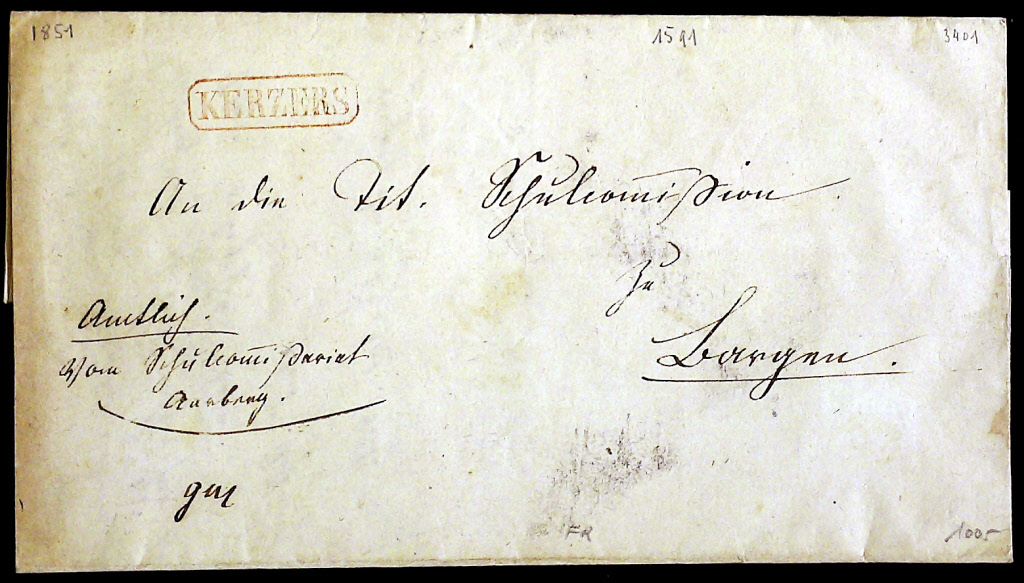 1851 1591 3401
KERZERS
An die Tit. Schulcom̅ission
Zu
Bargen.
Amtlich.
Vom Schulcom̅issariat
Aarberg.
FR 1005